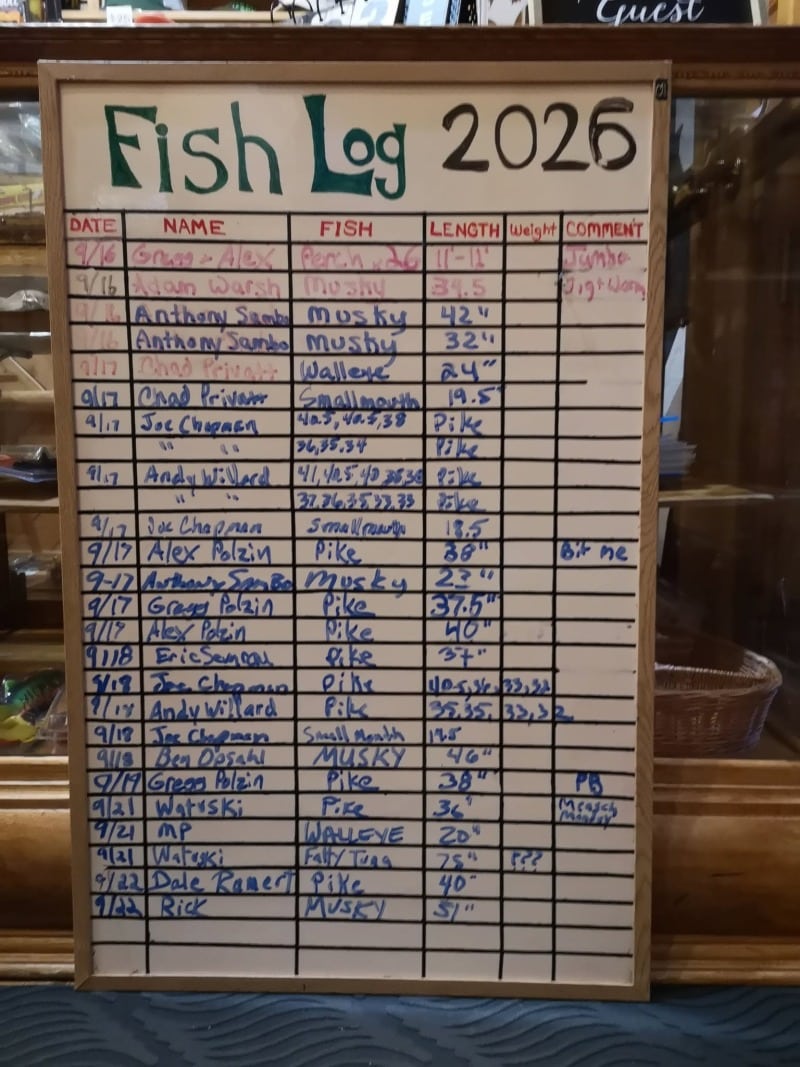 Guest
Fish Log 2026
DATE NAME FISH LENGTH Weight COMMENT
9/16 Gregg + Alex Perch x26 11"-12" Jumbo
9/16 Adam Warsh Musky 34.5 Jig+Worm
9/16 Anthony Sambo Musky 42"
9/16 Anthony Sambo Musky 32"
9/17 Chad Privatt Walleye 24"
9/17 Chad Privatt Smallmouth 19.5"
9/17 Joe Chapman 40.5, 40.5, 38 Pike
" " 36, 35, 34 Pike
9/17 Andy Willard 41, 40.5, 40 Pike
" " Pike
9/17 Joe Chapman Smallmouth 18.5
9/17 Alex Polzin Pike 38" Bit me
9-17 Anthony Sambo Musky 23"
9/17 Gregg Polzin Pike 37.5"
9/17 Alex Polzin Pike 40"
9/18 Eric Pike 37"
9/18 Joe Chapman Pike 40.5, 36, 33, 32
9/18 Andy Willard Pike 35, 35, 33, 32
9/18 Joe Chapman Smallmouth 19.5
9/18 Ben Opsahl MUSKY 46"
9/19 Gregg Polzin Pike 38" PB
9/21 Watrski Pike 36" Monday
9/21 MP WALLEYE 20"
9/21 Fatty Tuna 75" ???
9/22 Dale Ramert Pike 40"
9/22 Rick MUSKY 51"